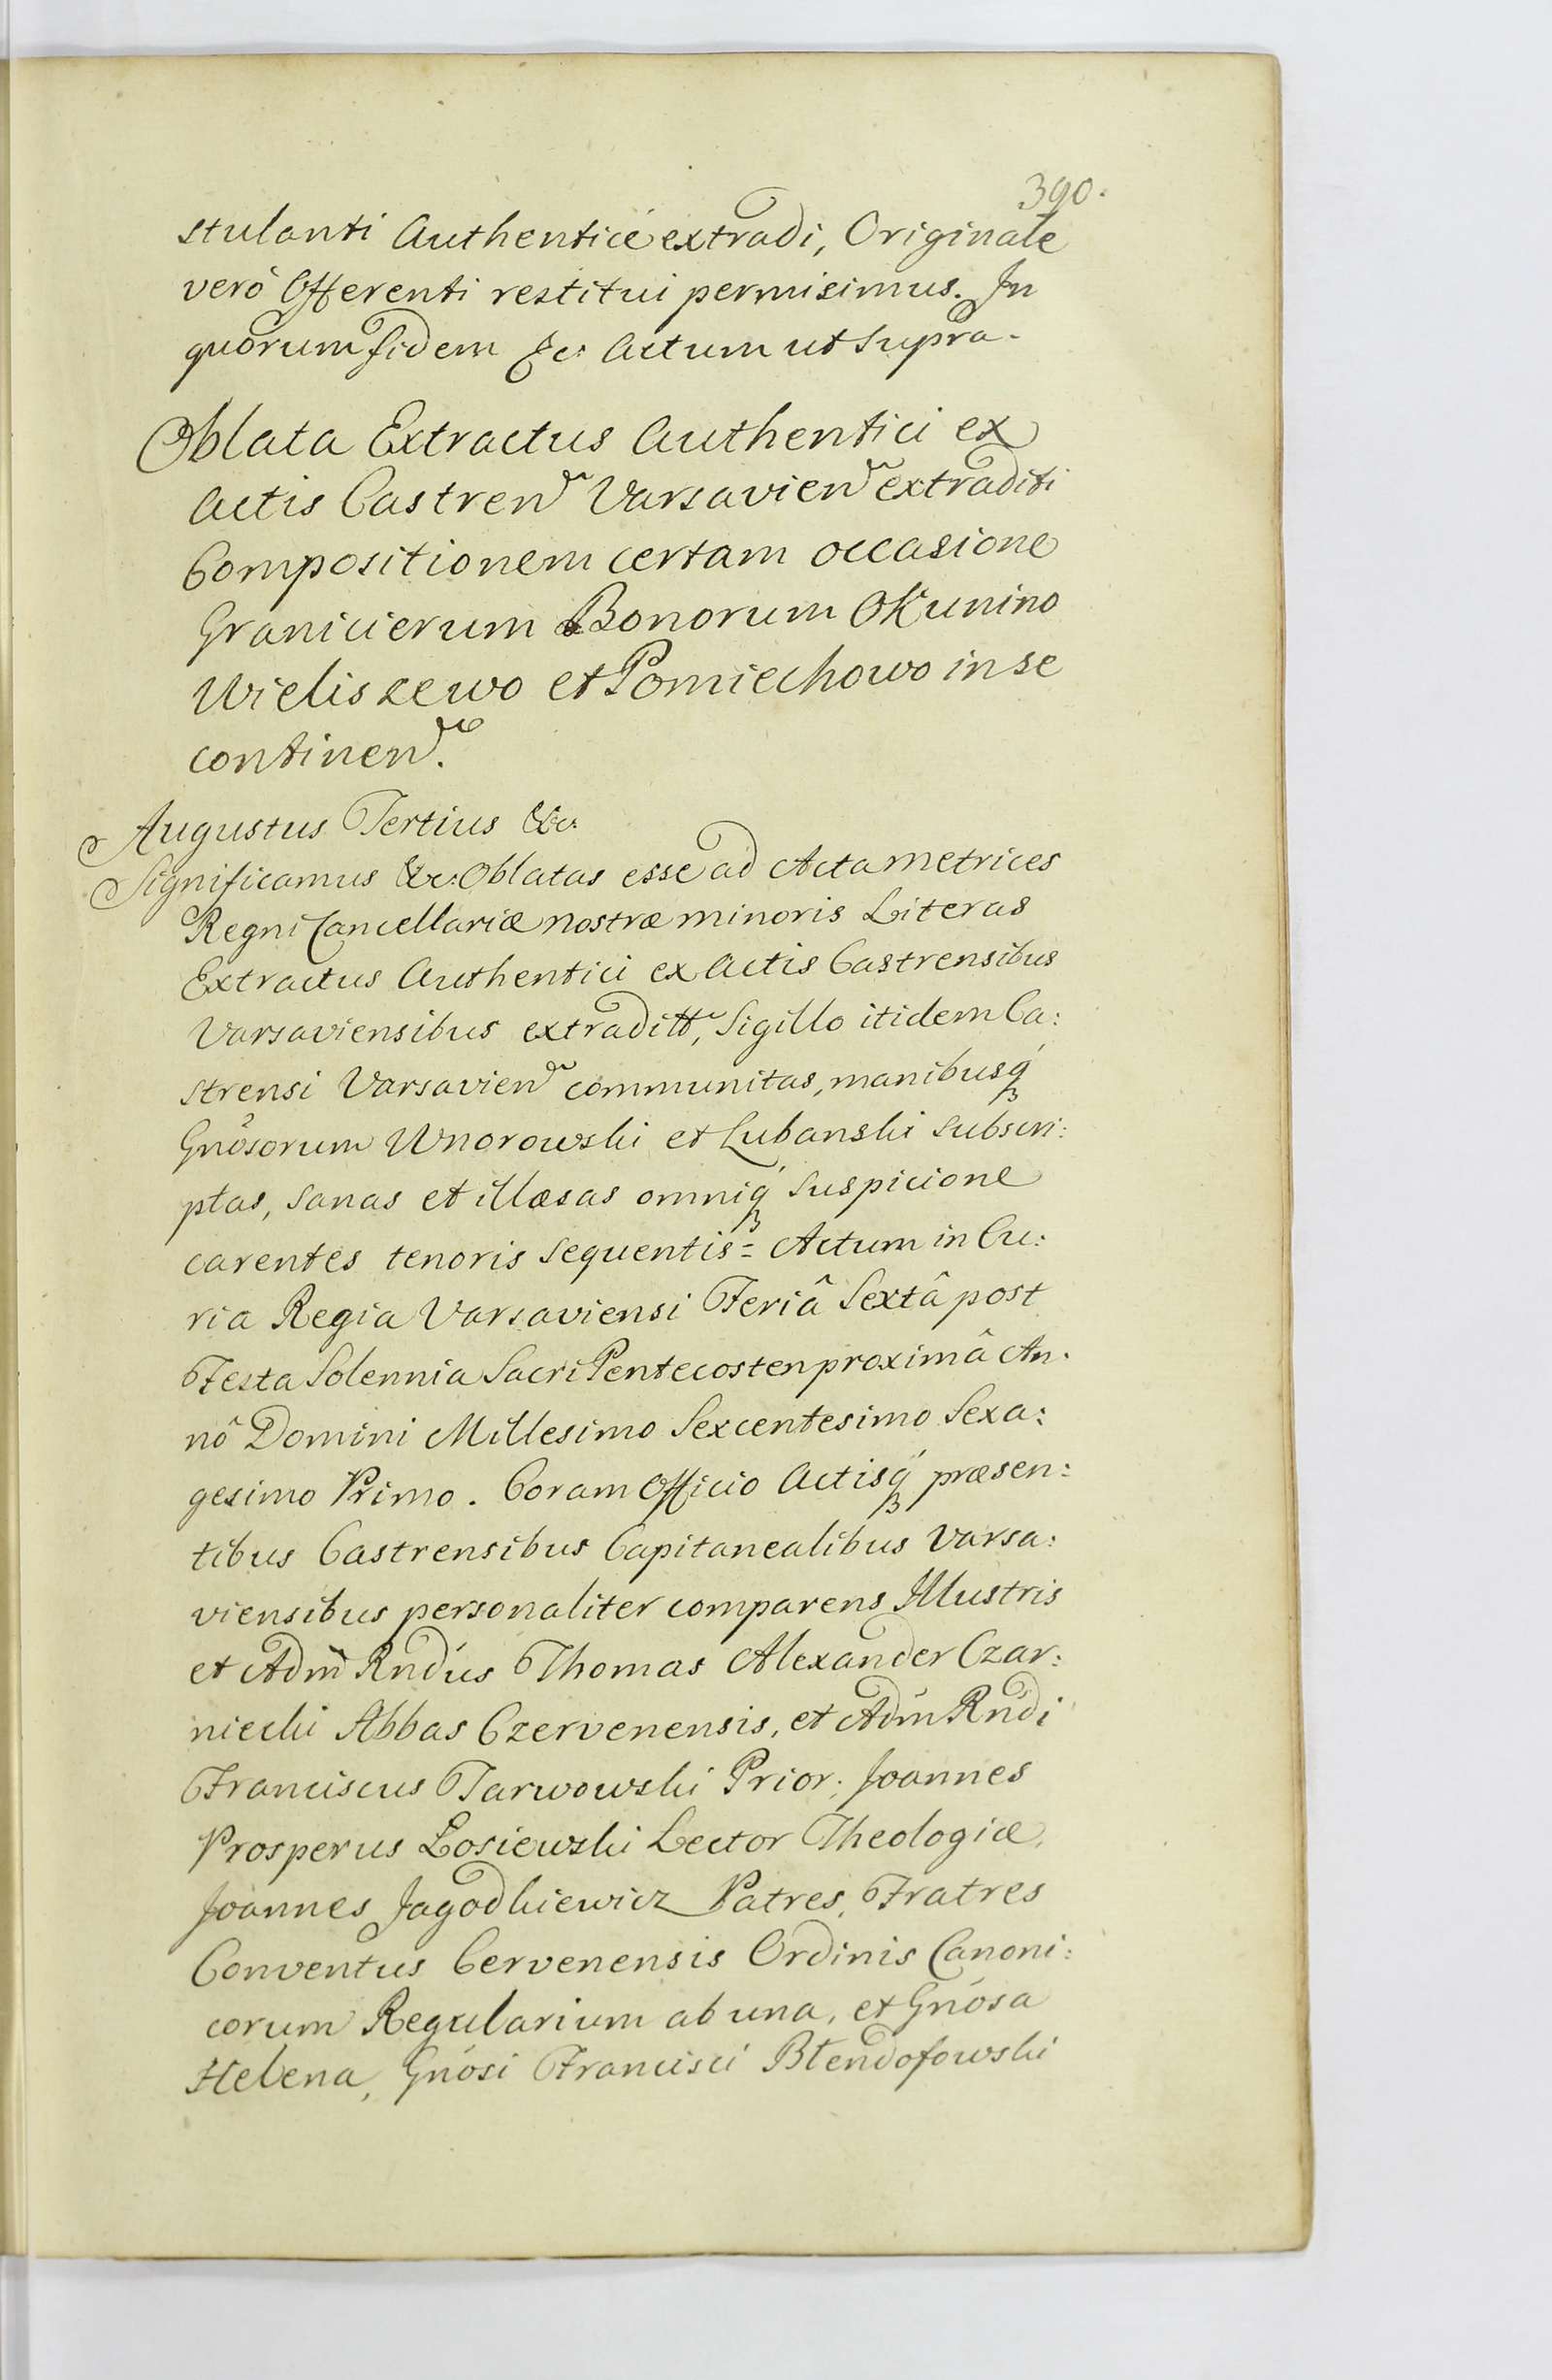 390.
stulanti Authenticè extradi, Originale
verò Offerenti restitui permisimus. In
quorum fidem &c: Actum ut supra.
Oblata Extractus Authentici ex
Actis Castren̄ Varsavien̄ extraditi
Compositionem certam occasione
Granicierum Bonorum Okunino
Wieliszewo et Pomiechowo in se
continen̄.
Augustus Tertius &c:
Significamus &c: Oblatas esse ad Acta Metrices
Regni Cancellariæ nostræ minoris Literas
Extractus Authentici ex Actis Castrensibus
Varsaviensibus extraditt, Sigillo itidem Ca:
strensi Varsavien̄ communitas, manibusq́
Gnõsorum Wnorowski et Lubanski subscri:
ptas, sanas et illæsas omniq́ suspicione
carentes tenoris sequentis = Actum in Cu:
ria Regia Varsaviensi Feriâ Sextâ post
Festa Solennia Sacri Pentecosten proximâ An.
nô Domini Millesimo Sexcentesimo Sexa:
gesimo Primo. Coram Officio Actisq́ præsen:
tibus Castrensibus Capitanealibus Varsa:
viensibus personaliter comparens Illustris
et Adm̃ Rnd́us Thomas Alexander Czar:
niecki Abbas Czervenensis, et Adm̃ Rnd́i
Franciscus Tarwowski Prior, Joannes
Prosperus Łosiewski Lector Theologiæ,
Joannes Jagodkiewicz Patres, Fratres
Conventus Cervenensis Ordinis Canoni:
corum Regularium ab una, et Gnósa
Helena, Gnósi Francisci Błendofowski